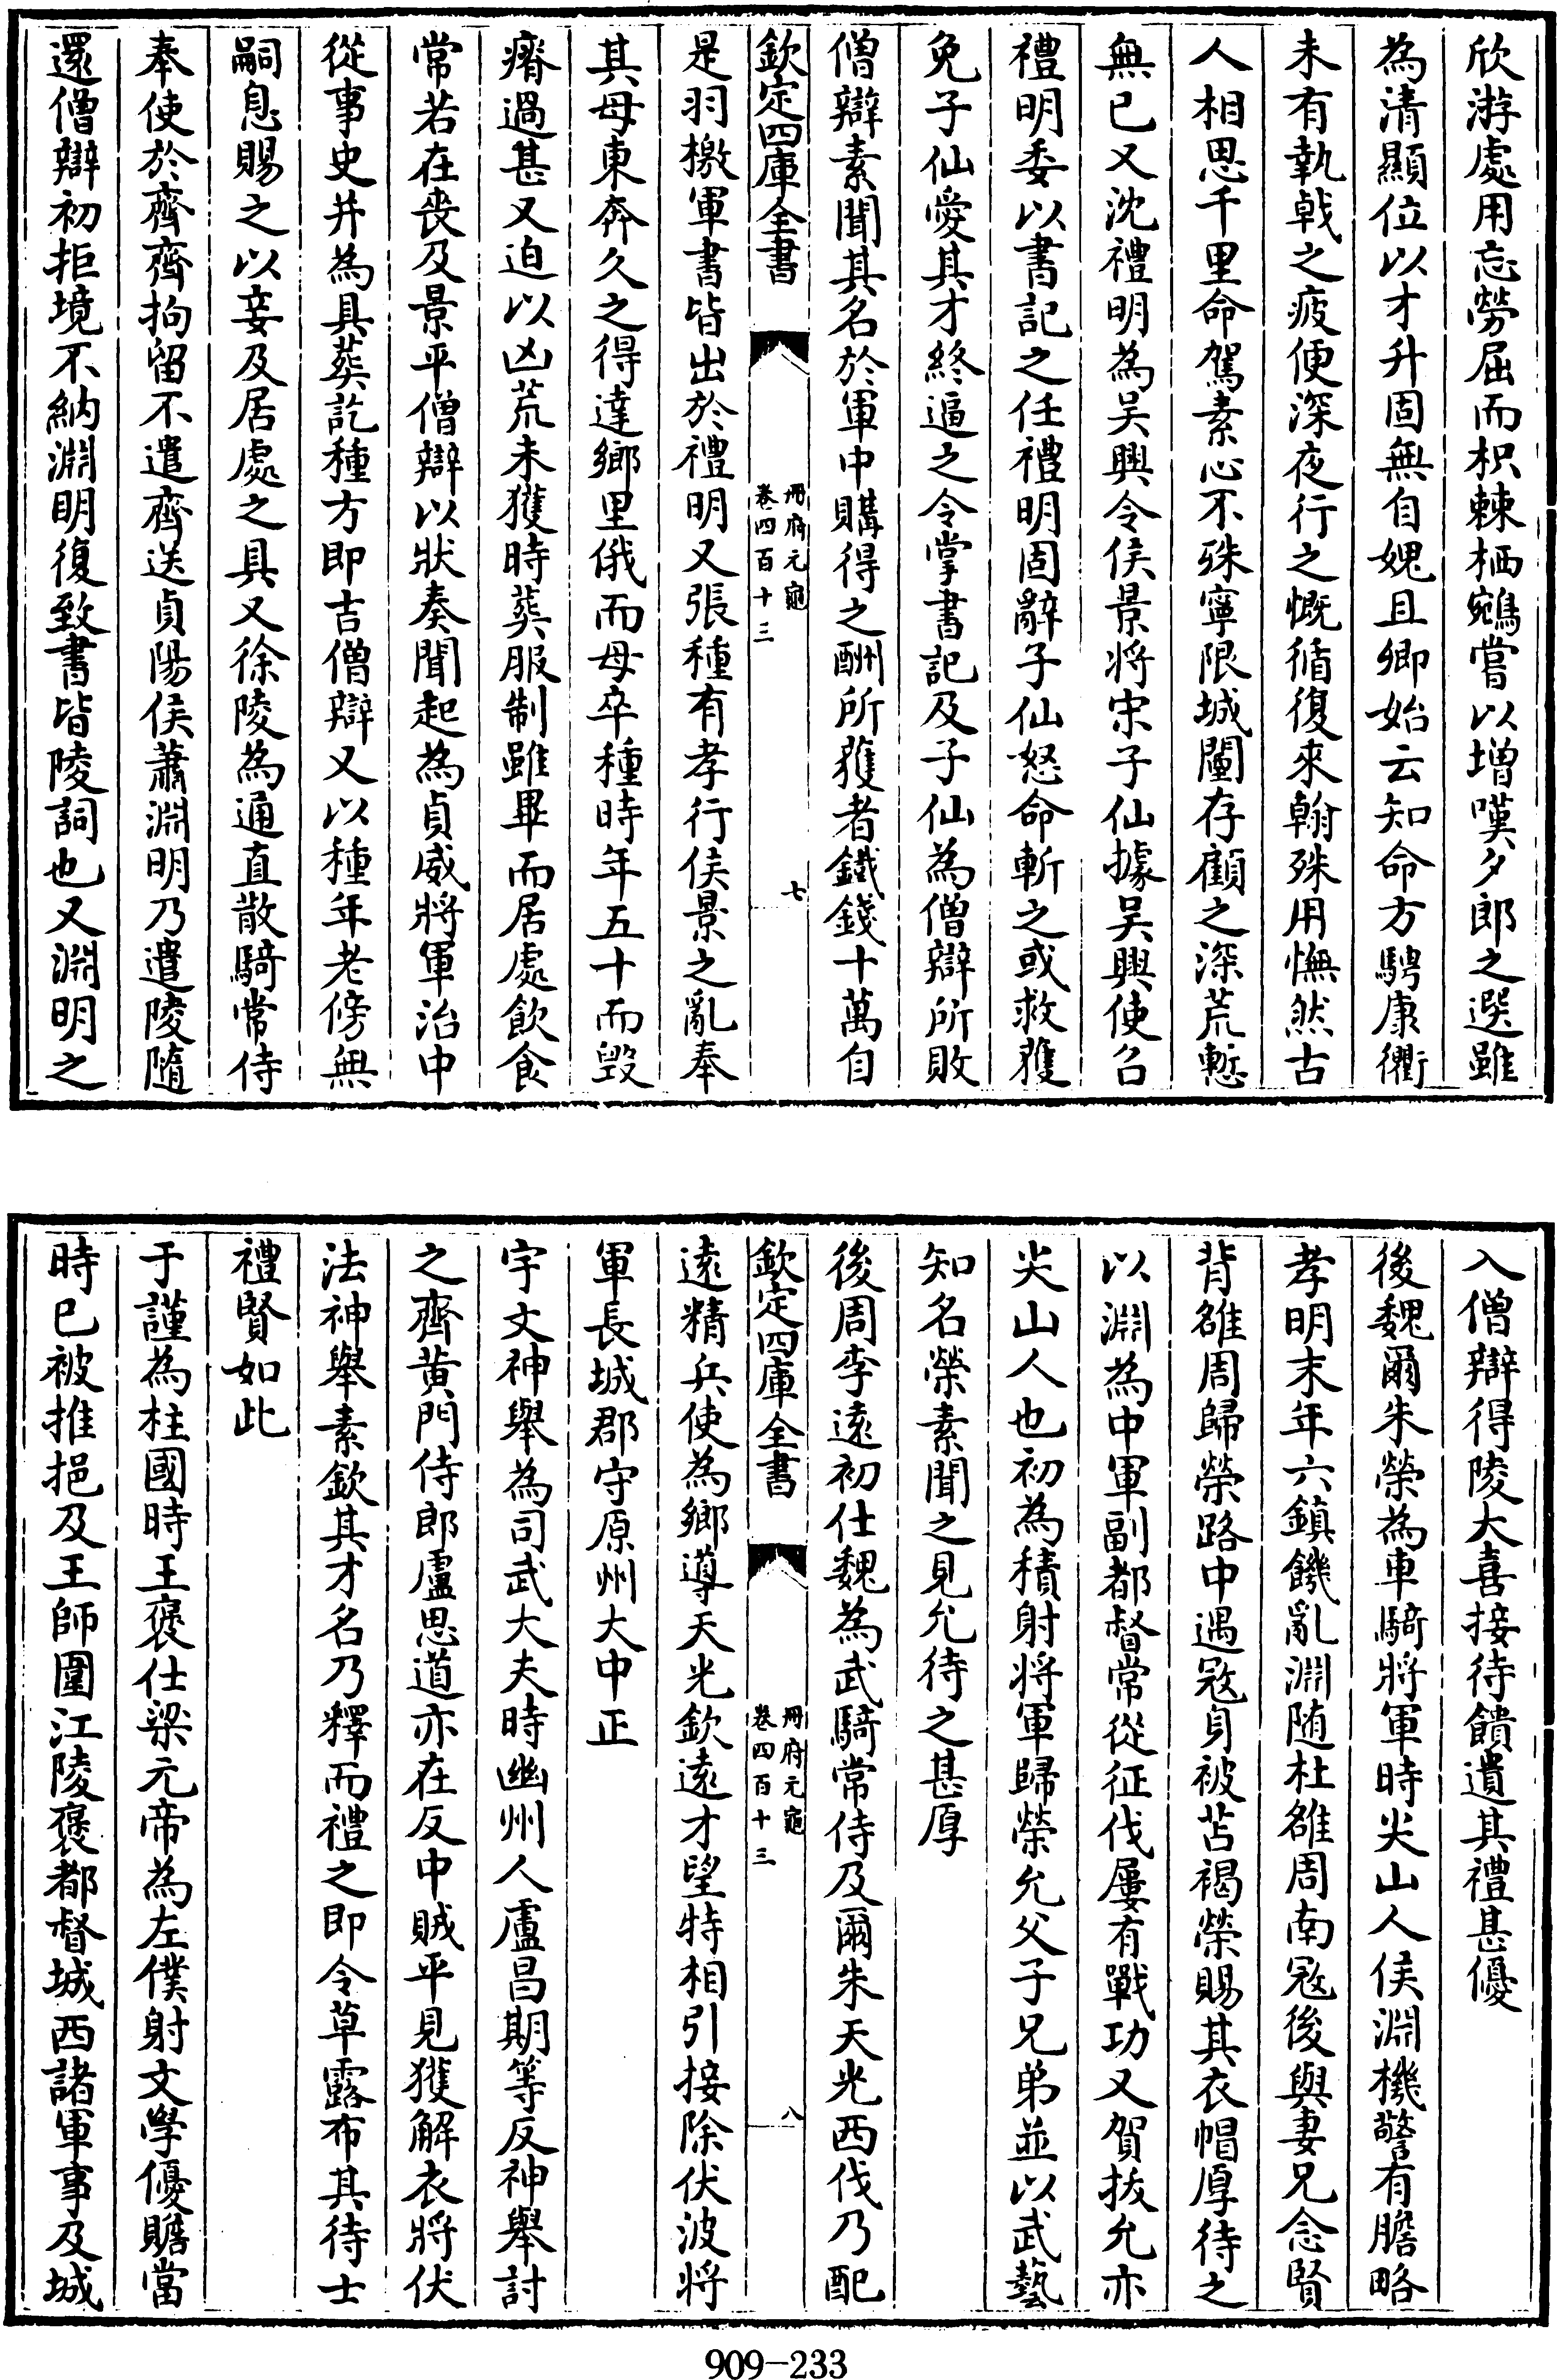 欣游處用忘勞屈而枳棘栖鵷嘗以增嘆夕郎之選雖
為清顯位以才升固無自媿且卿始云知命方騁康衢
未有執戟之疲便深夜行之慨循復來翰殊用憮然古
人相思千里命駕素心不殊寧限城闉存顧之深荒慙
無已又沈禮明為吳興令侯景將宋子仙據吳興使召
禮明委以書記之任禮明固辭子仙怒命斬之或救獲
免子仙愛其才終逼之令掌書記及子仙為僧辯所敗
僧辯素聞其名於軍中購得之酬所獲者鐵錢十萬自
欽定四庫全書
冊府元龜
卷四百十三
七
是羽檄軍書皆出於禮明又張種有孝行侯景之亂奉
其母東奔久之得達鄉里俄而母卒種時年五十而毀
瘠過甚又迫以凶荒未獲時葬服制雖畢而居處飲食
常若在喪及景平僧辯以狀奏聞起為貞威將軍治中
從事史并為具葬訖種方即吉僧辯又以種年老傍無
嗣息賜之以妾及居處之具又徐陵為通直散騎常侍
奉使於齊齊拘留不遣齊送貞陽侯蕭淵明乃遣陵隨
還僧辯初拒境不納淵明復致書皆陵詞也又淵明之
入僧辯得陵大喜接待饋遺其禮甚優
後魏爾朱榮為車騎將軍時尖山人侯淵機警有膽略
孝明末年六鎮饑亂淵随杜雒周南宼後與妻兄念賢
背雒周歸榮路中遇宼身被苫褐榮賜其衣帽厚待之
以淵為中軍副都督常從征伐屢有戰功又賀拔允亦
尖山人也初為積射將軍歸榮允父子兄弟並以武藝
知名榮素聞之見允待之甚厚
後周李遠初仕魏為武騎常侍及爾朱天光西伐乃配
欽定四庫全書
冊府元龜
卷四百十三
八
遠精兵使為鄉導天光欽遠才望特相引接除伏波將
軍長城郡守原州大中正
宇文神舉為司武大夫時幽州人盧昌期等反神舉討
之齊黄門侍郎盧思道亦在反中賊平見獲解衣將伏
法神舉素欽其才名乃釋而禮之即令草露布其待士
禮賢如此
于謹為柱國時王褒仕梁元帝為左僕射文學優贍當
時已被推挹及王師圍江陵褒都督城西諸軍事及城
909-233